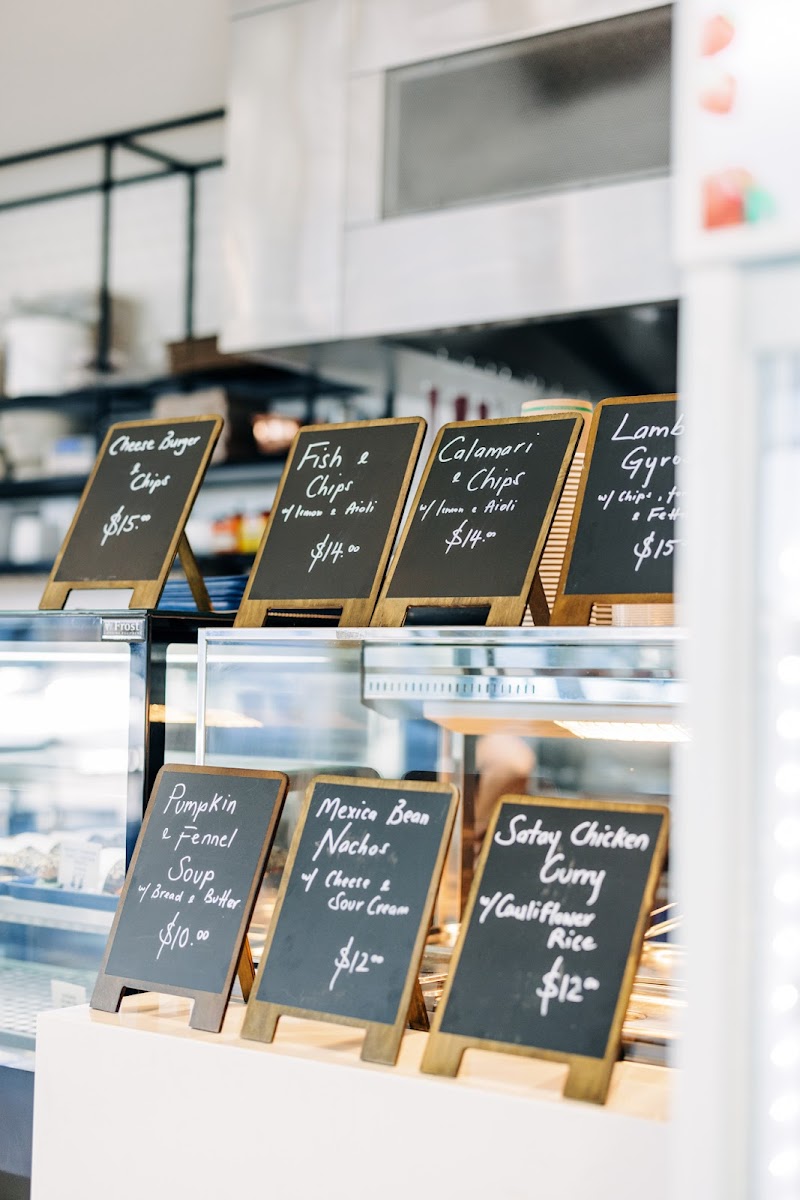 Cheese Burger
& Chips
$15.00
Fish &
Chips
w/ lemon & Aioli
$14.00
Calamari
& Chips
w/ lemon & Aioli
$14.00
Lamb
w/ Chips,
&
$15
Frost
Pumpkin
& Fennel
Soup
w/ Bread & Butter
$10.00
Mexica Bean
Nachos
w/ Cheese &
Sour Cream
$12.00
Satay Chicken
Curry
w/ Cauliflower
Rice
$12.00